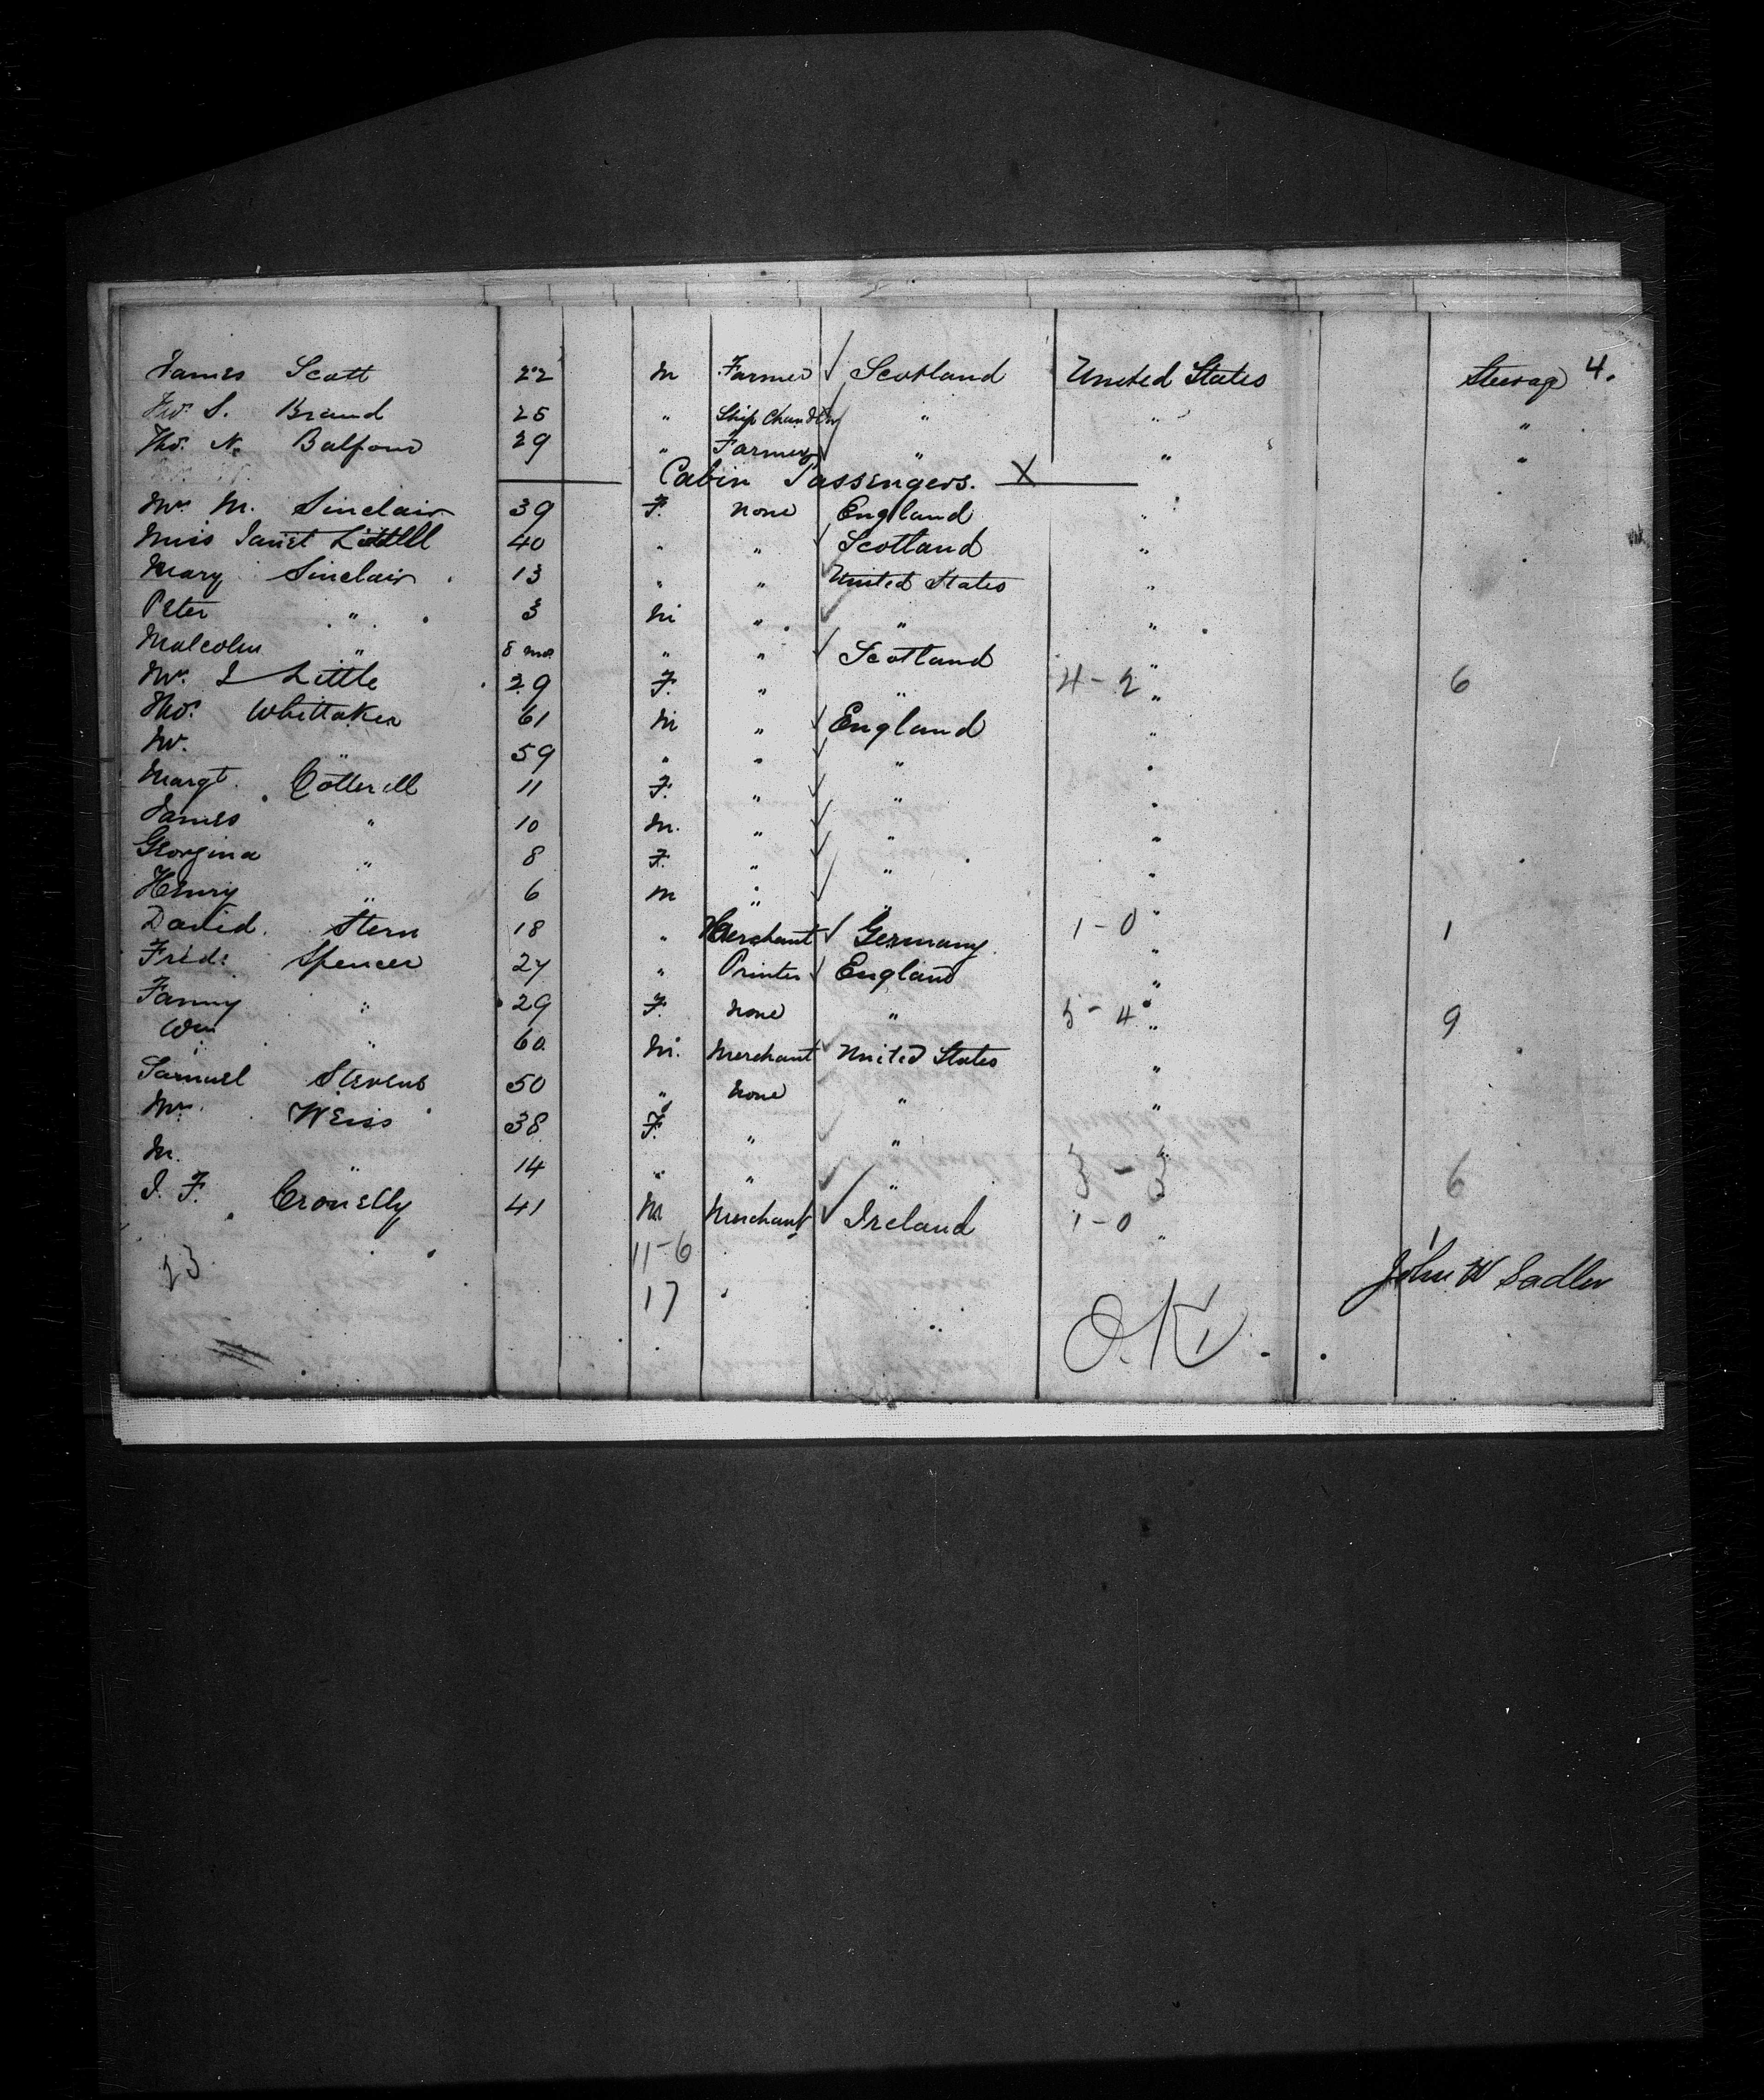 4.
James Scott 22 M Farmer Scotland United States Steerage
Jno. S. Brand 25 " Ship Chandler " " "
Tho. N. Balfour 29 " Farmer " " "
Cabin Passengers. X
Mrs M. Sinclair 39 F. None England "
Miss Janet Littell 40 " " Scotland "
Mary Sinclair 13 " " United States "
Peter " 3 M " " "
Malcolm " 8 mos " " Scotland "
Mrs. J Little 29 F. " " 4-2 " 6
Tho. Whittaker 61 M " England "
W. " 59 " " " "
Margt. Cotterell 11 F. " " "
James " 10 M. " " "
Georgina " 8 F. " " "
Henry " 6 M " " "
David Stern 18 " Merchant Germany 1-0 " 1
Fredk Spencer 27 " Printer England "
Fanny " 29 F. None " 5-4 " 9
Wm " 60 M. Merchant United States "
Samuel Stevens 50 " None " "
Mrs. Weiss 38 F. " " "
M. " 14 " " " 3-3 " 6
J. F. Cronelly 41 M Merchant Ireland 1-0 " 1
23 11-6
17
John W Sadler
O.K.